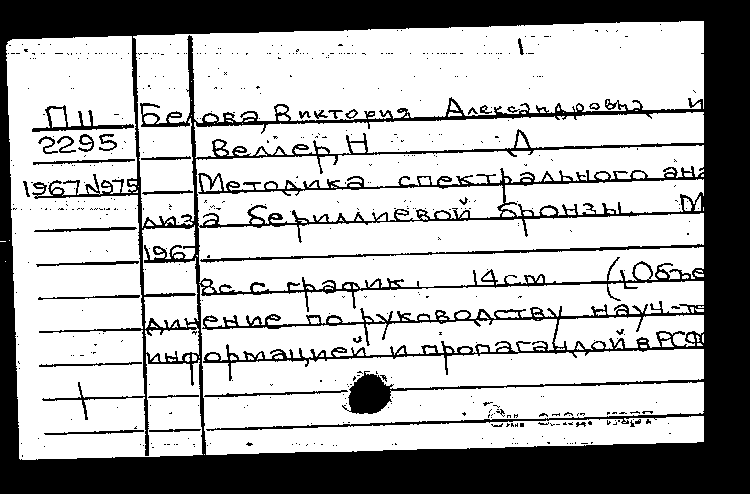 П II Белова, Виктория Александровна и
2295 Веллер, Н Д
1967 N975 Методика спектрального ана
лиза бериллиевой бронзы. М
1967.
8с. с график. 14 см. ([Объе
динение по руководству науч.-те
информацией и пропагандой в РСФС